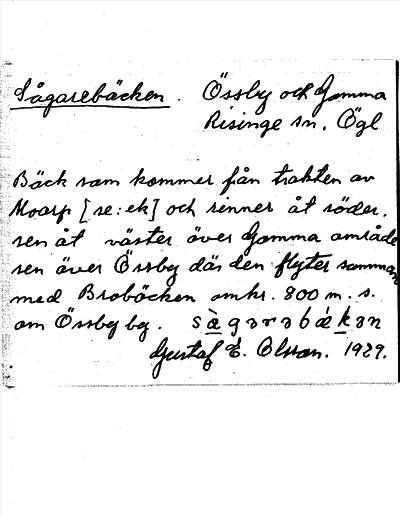 Sågarebäcken. Össby och Gomma
Risinge sn. Ögl
Bäck som kommer från trakten av
Moarp [se: ek] och rinner åt söder.
sen åt väster över Gomma område
sen över Össby där den flyter samman
med Broböcken omkr. 800 m. s.
om Össby bg. sàgərəbækən
Gustaf E. Olsson. 1929.